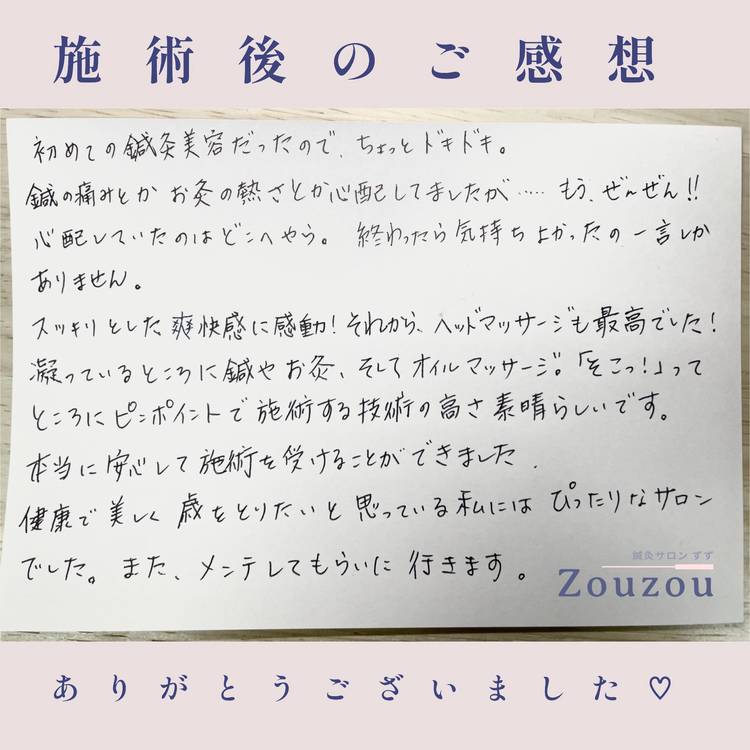 施術後のご感想
初めての鍼灸美容だったので、ちょっとドキドキ。
鍼の痛みとか お灸の熱さとか心配してましたが…… もう、ぜんぜん!!
心配していたのはどこへやら。 終わったら気持ちよかったの一言しか
ありません。
スッキリとした爽快感に感動!それから、ヘッドマッサージも最高でした!
凝っているところに鍼や お灸、そしてオイルマッサージ。「そこっ!」って
ところにピンポイントで施術する技術の高さ素晴らしいです。
本当に安心して施術を受けることができました.
健康で美しく 歳をとりたいと思っている私には ぴったりなサロン
でした。また、メンテしてもらいに 行きます。
鍼灸サロン ずず
Zouzou
ありがとうございました♡